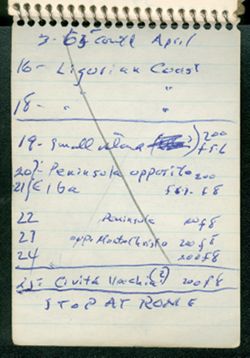 April
16 - Ligurian Coast
18 - " "
19 - Small island 200
f5.6
20 - Peninsula opposite 200
21 Elba f8
22 Peninsula 200 f8
23 opp. Montechristo 200 f8
24 200 f8
25 - Civita Vechia (2) 200 f8
STOP AT ROME